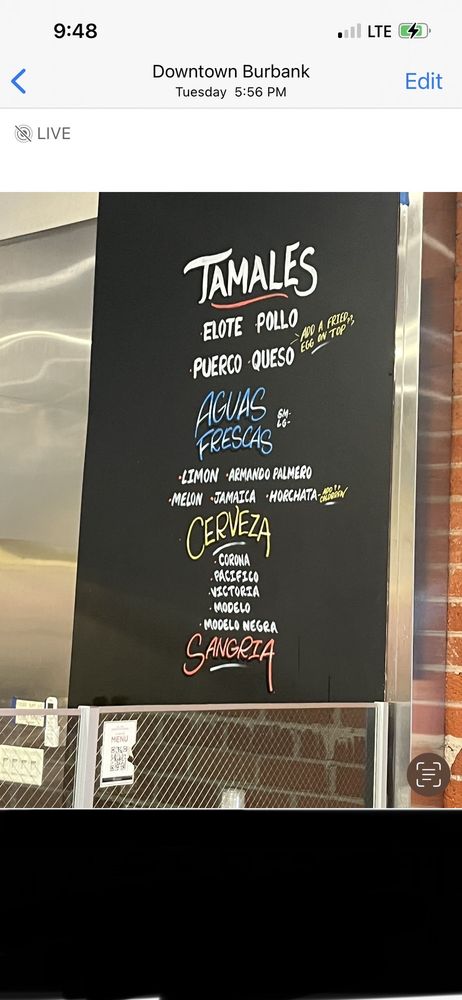 9:48 LTE
Downtown Burbank
Edit
Tuesday 5:56 PM
LIVE
TAMALES
·ELOTE ·POLLO
·PUERCO ·QUESO
ADD A FRIED
EGG ON TOP
AGUAS
FRESCAS
SM-
LG-
·LIMON ·ARMANDO PALMERO
·MELON ·JAMAICA ·HORCHATA-
CERVEZA
·CORONA
·PACIFICO
·VICTORIA
·MODELO
·MODELO NEGRA
SANGRIA
MENU